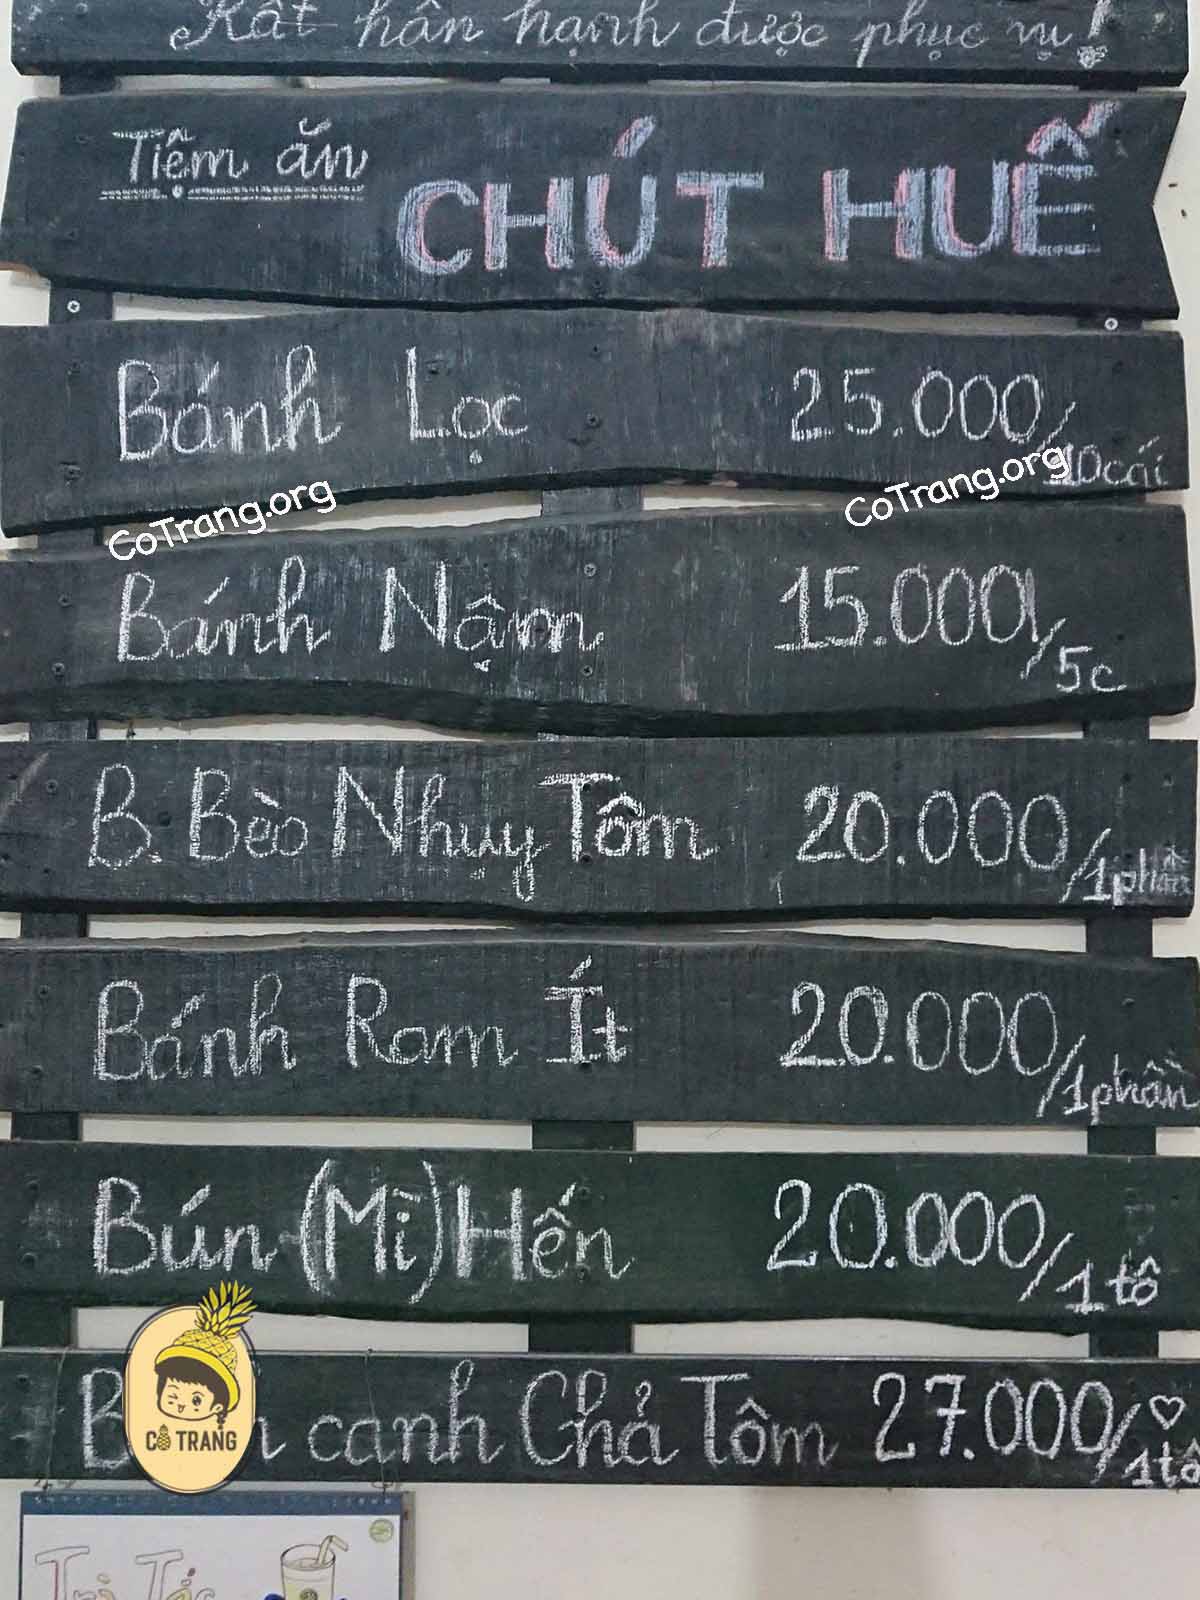 Rất hân hạnh được phục vụ!
Tiệm ăn
CHÚT HUẾ
Bánh Lọc 25.000/10cái
CoTrang.org
CoTrang.org
Bánh Nậm 15.000/5c
B. Bèo Nhụy Tôm 20.000/1phần
Bánh Ram Ít 20.000/1phần
Bún (Mì) Hến 20.000/1 tô
canh Chả Tôm 27.000/1tô
CÔ TRANG
Trà Tắc